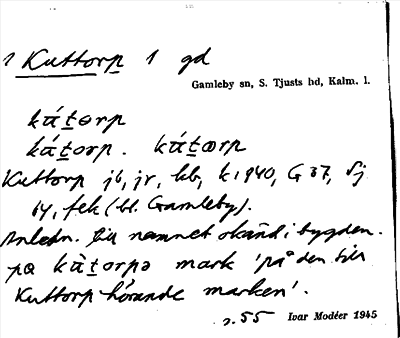 1 Kuttorp 1 gd
Gamleby sn, S. Tjusts hd, Kalm. l.
kát̲ɵrp
kát̲orp. kát̲ɷrp
Kuttorp jb, jr, kb, k 1940, G 37, Sj
64, fek (bl. Gamleby).
Anledn. till namnet okänd i bygden.
pɑ kàt̲orpə mark 'på den till
Kuttorp hörande marken'.
s. 55 Ivar Modéer 1945